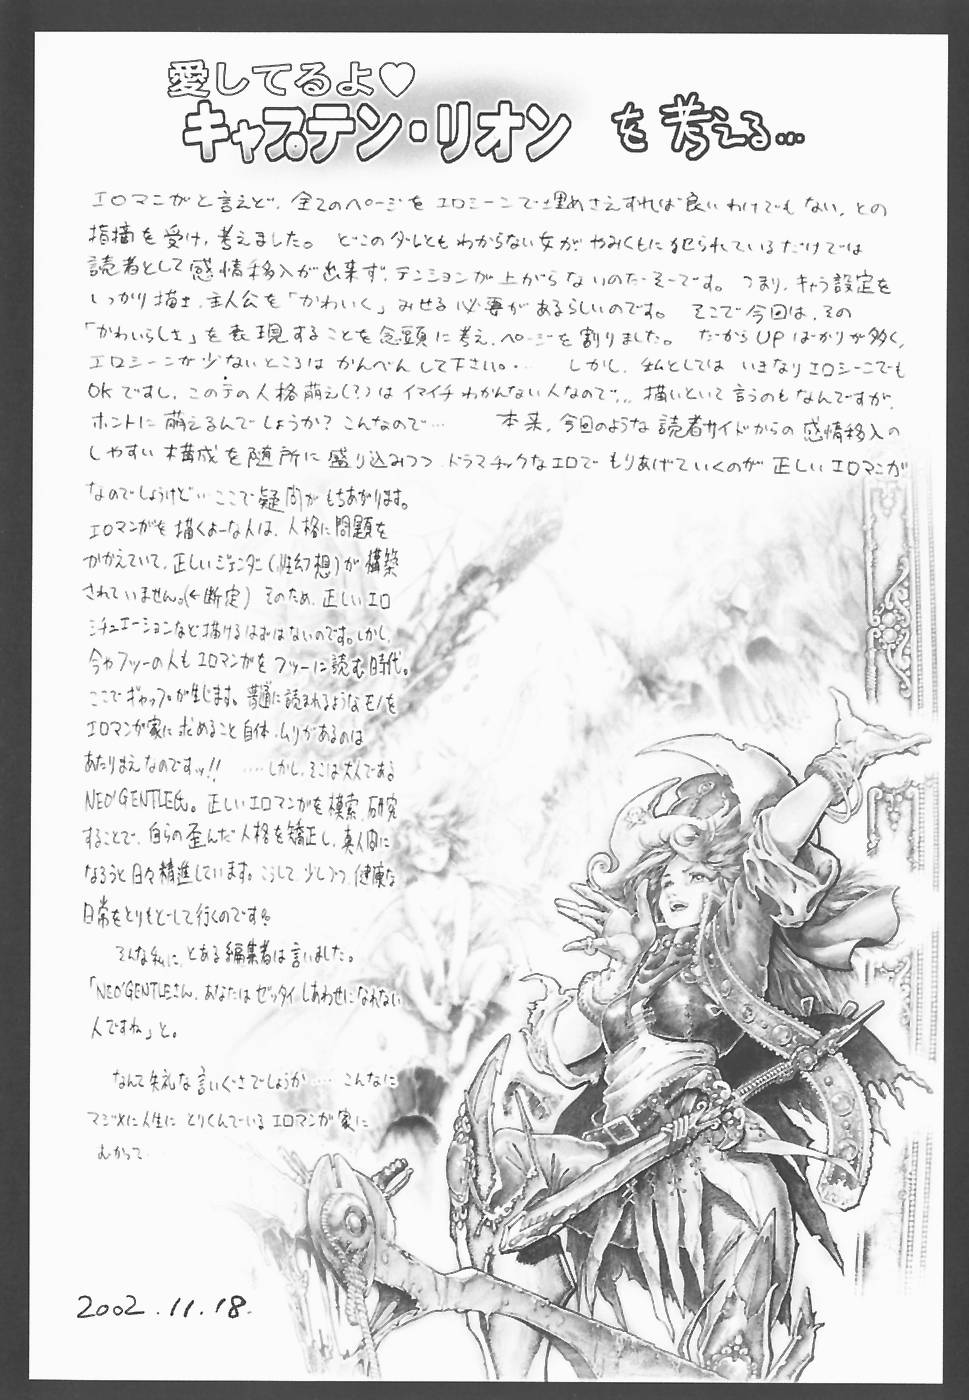 愛してるよ♡
キャプテン・リオン を考える…
エロマンガと言えど、全てのページをエロシーンで埋めさえすれば良いわけでもない、との
指摘を受け、考えました。 どこのダレともわからない女がやみくもに犯られているだけでは
読者として感情移入が出来ず、テンションが上がらないのだそーです。 つまり、キャラ設定を
しっかり描き、主人公を「かわいく」みせる必要があるらしいのです。 そこで今回は、その
「かわいらしさ」を表現することを念頭に考え、ページを割りました。 だからUPばかりが多く、
エロシーンが少ないところはかんべんして下さい。… しかし、私としてはいきなりエロシーンでも
OKですし、このテの人格萌え(?)はイマイチわかんない人なので… 描いといて言うのもなんですが、
ホントに萌えるんでしょうか? こんなので… 本来、今回のような読者サイドからの感情移入の
しやすい構成を随所に盛り込みつつ、ドラマチックなエロでもりあげていくのが正しいエロマンガ
なのでしょうけど… ここで疑問がもちあがります。
エロマンガを描くよーな人は、人格に問題を
かかえていて、正しいジェンダー(性幻想)が構築
されていません。(←断定) そのため、正しいエロ
シチュエーションなど描けるはずはないのです。しかし、
今やフツーの人もエロマンガをフツーに読む時代。
ここでギャップが生じます。普通に読まれるようなモノを
エロマンガ家に求めること自体、ムリがあるのは
あたりまえなのですッ!! ……しかし、そこは大人である
NEO'GENTLE氏。正しいエロマンガを模索、研究
することで、自らの歪んだ人格を矯正し、真人間に
なろうと日々精進しています。こうして、少しづつ、健康な
日常をとりもどして行くのです。
そんな私に、とある編集者は言いました。
「NEO'GENTLEさん、あなたはゼッタイしあわせになれない
人ですね」と。
なんて失礼な言いぐさでしょうか…… こんなに
マジメに人生にとりくんでいるエロマンガ家に
むかって
2002.11.18.